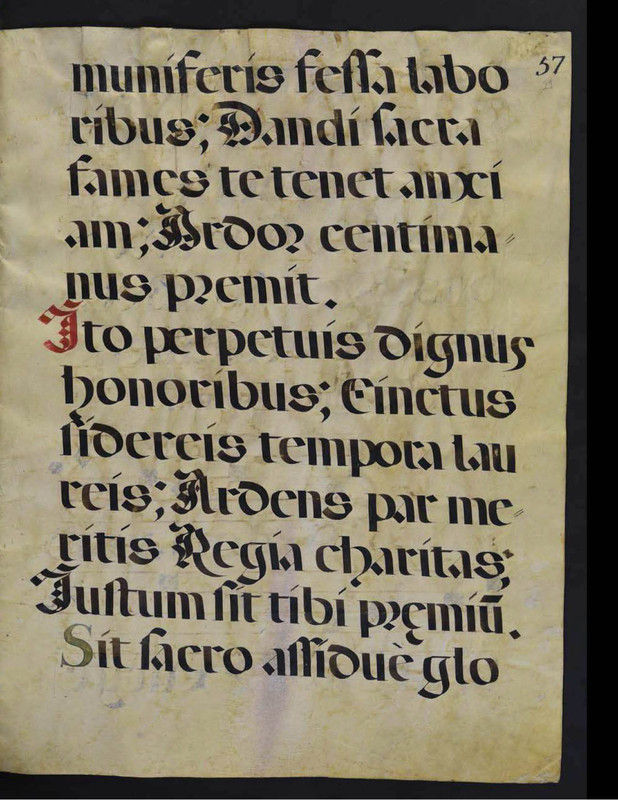 57
muniferis fessa labo
ribus; Dandi sacra
fames te tenet anxi
am; Ardor centima=
nus premit.
Ito perpetuis dignus
honoribus; Cinctus
sidereis tempora lau
reis; Ardens par me=
ritis Regia charitas;
Justum sit tibi pręmiũ.
Sit sacro assiduè glo